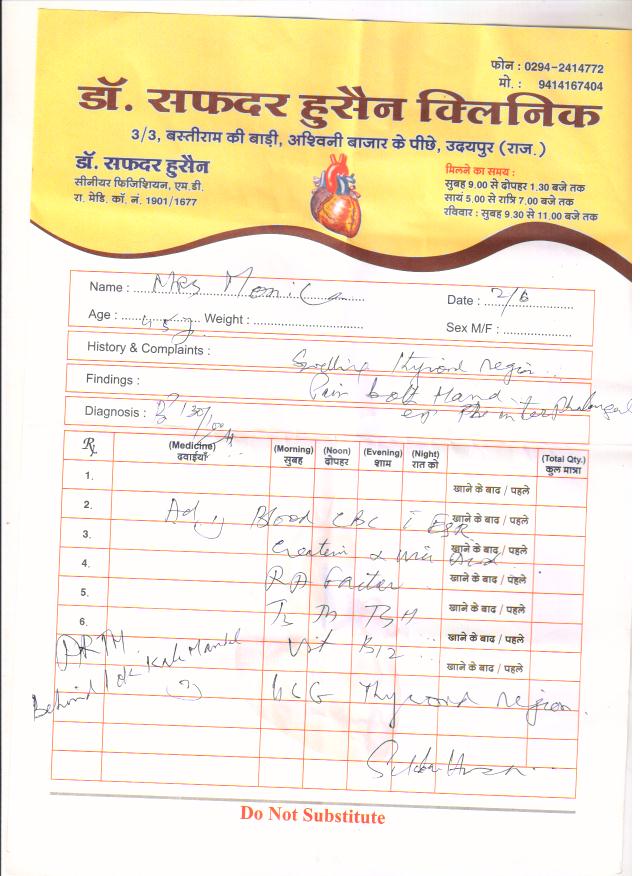 फोन : 0294-2414772
मो. : 9414167404
डॉ. सफदर हुसैन क्लिनिक
3/3, बस्तीराम की बाड़ी, अश्विनी बाजार के पीछे, उदयपुर (राज.)
डॉ. सफदर हुसैन
सीनीयर फिजिशियन, एम.डी.
रा. मेडि. कॉ. नं. 1901/1677
मिलने का समय :
सुबह 9.00 से दोपहर 1.30 बजे तक
सायं 5.00 से रात्रि 7.00 बजे तक
रविवार : सुबह 9.30 से 11.00 बजे तक
Name : Mrs Date : 2/6
Age : 45y Weight : Sex M/F :
History & Complaints : Swelling thyroid region
Findings : Pain both Hand
Diagnosis : 130/100
Rx (Medicine) दवाईयाँ (Morning) सुबह (Noon) दोपहर (Evening) शाम (Night) रात को (Total Qty.) कुल मात्रा
1. खाने के बाद / पहले
2. Adv Blood CBC ESR खाने के बाद / पहले
3. खाने के बाद / पहले
4. RA Factor खाने के बाद / पहले
5. T3 T4 TSH खाने के बाद / पहले
6. खाने के बाद / पहले
Vit B12 खाने के बाद / पहले
Behind Lok Kala Mandal
Thyroid region
Do Not Substitute